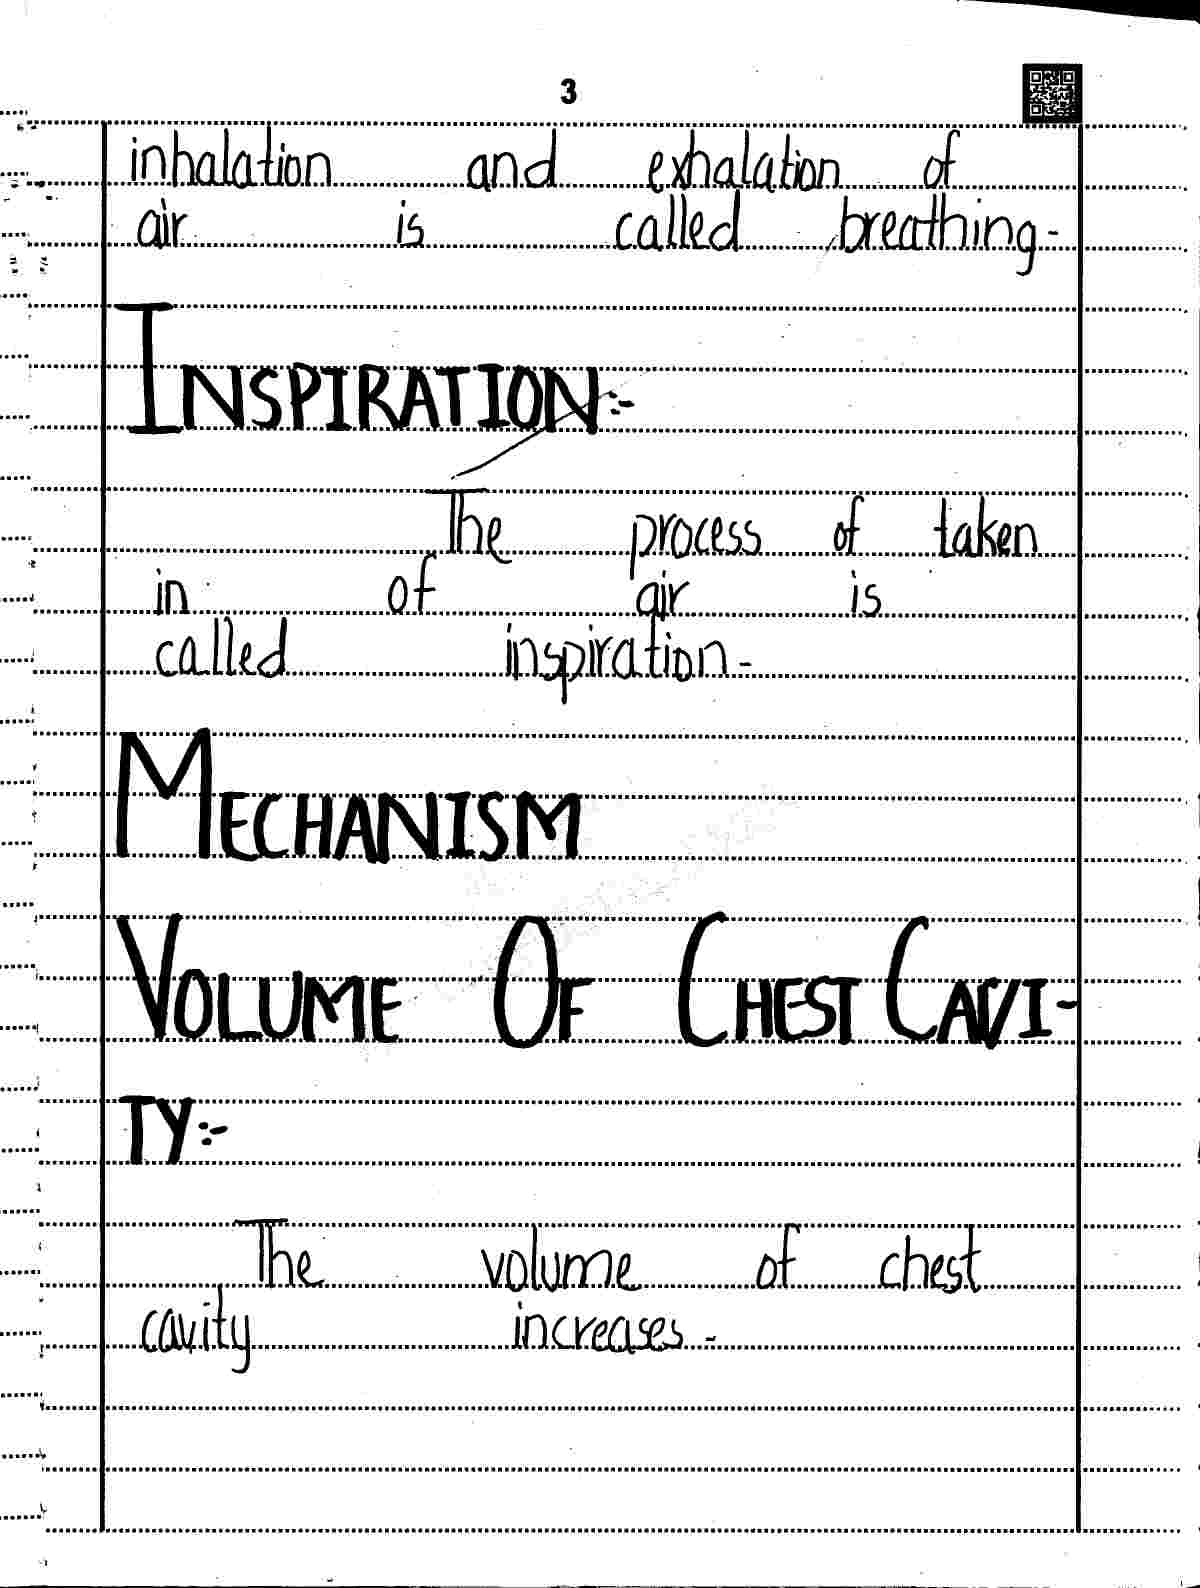 3
inhalation and exhalation of
air is called breathing.
INSPIRATION:-
The process of taken
in of air is
called inspiration.
MECHANISM
VOLUME OF CHEST CAVI-
TY:-
The volume of chest
cavity increases.